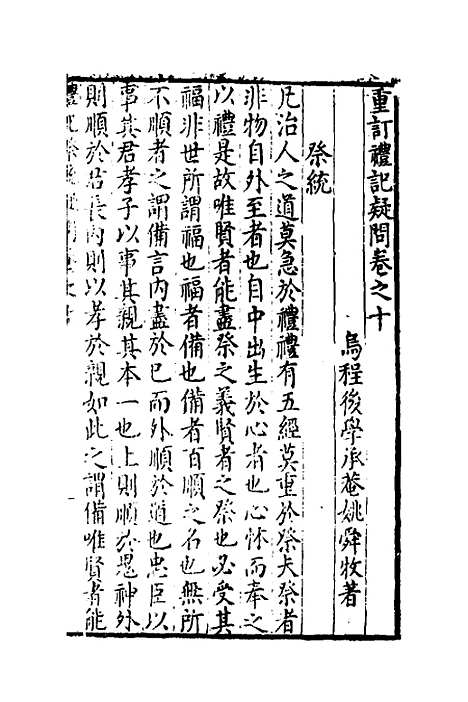 重訂禮記疑問卷之十
烏程後學承菴姚舜牧著
祭統
凡治人之道莫急於禮禮有五經莫重於祭夫祭者
非物自外至者也自中出生於心者也心怵而奉之
以禮是故唯賢者能盡祭之義賢者之祭也必受其
福非世所謂福也福者備也備者百順之名也無所
不順者之謂備言內盡於已而外順於道也忠臣以
事其君孝子以事其親其本一也上則順於鬼神外
則順於君長內則以孝於親如此之謂備唯賢者能